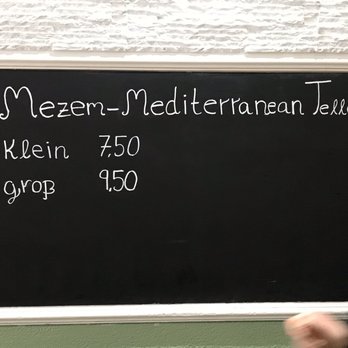 Mezem-Mediterranean Tell
Klein 7,50
groß 9,50